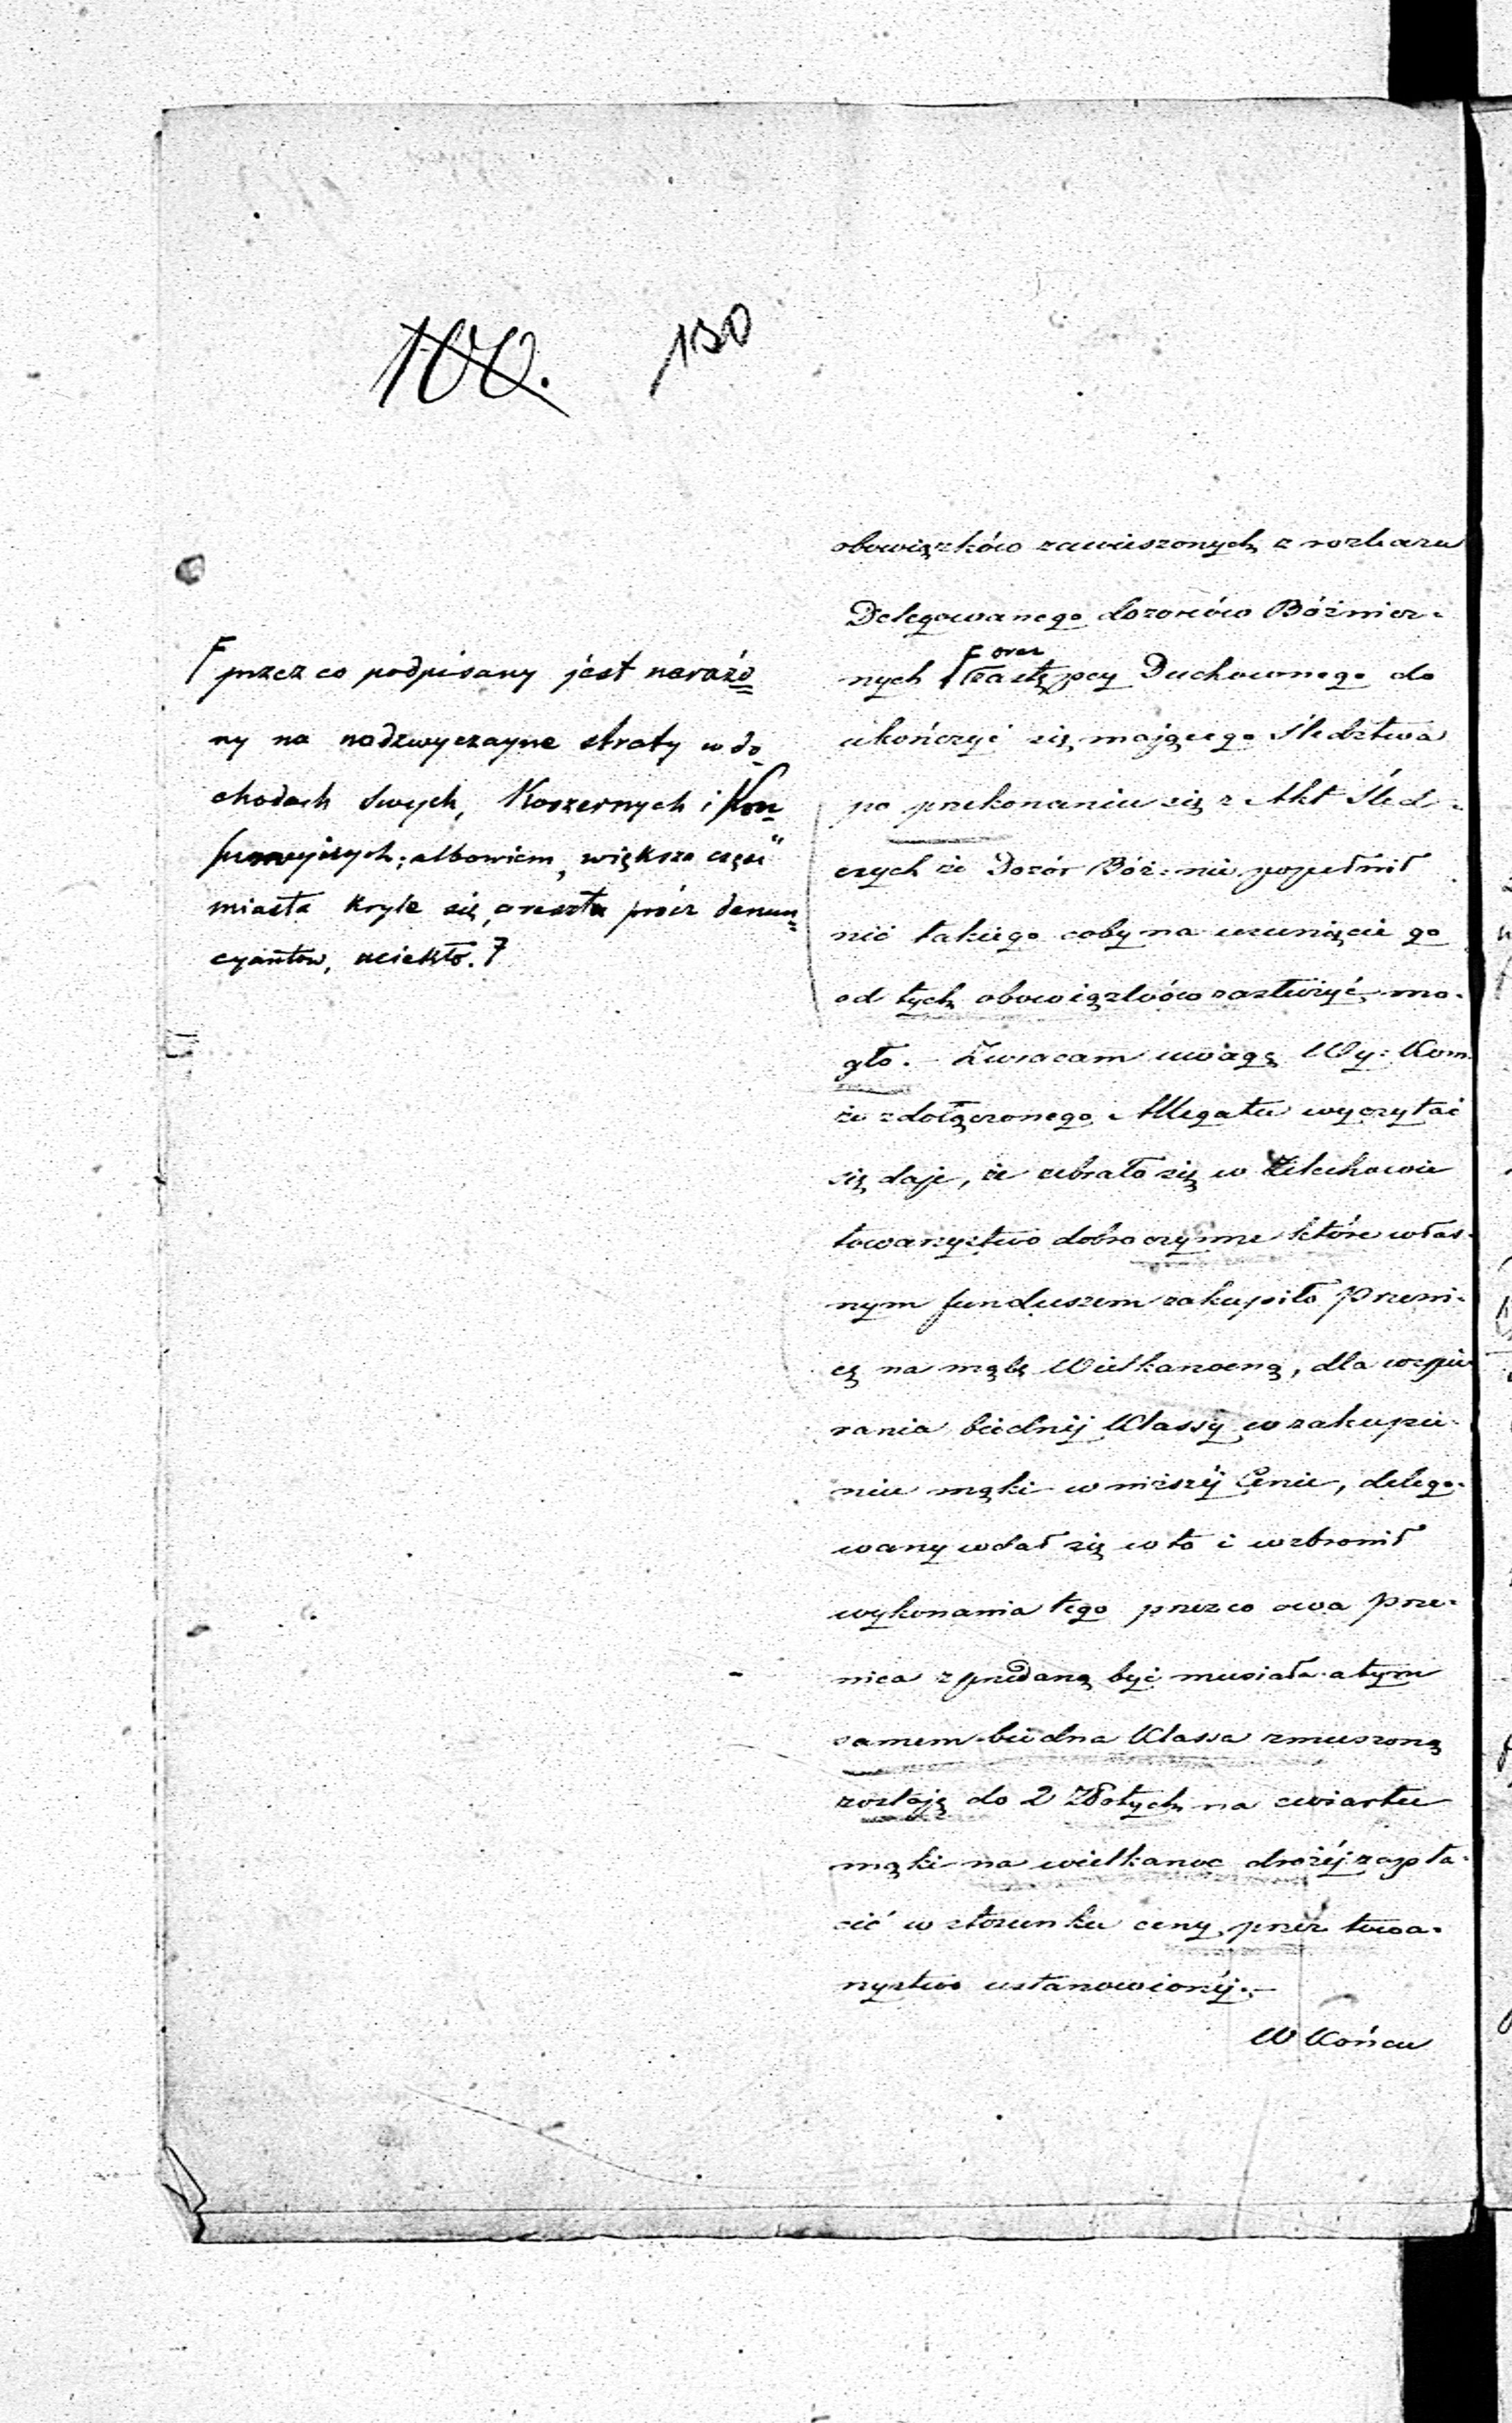 100. 130
F przez co podpisany jest narażo
ny na nadzwyczayne straty w do
chodach swych, Koszernych i Kon
sumcyjnych; albowiem, większa część
miasta kryle się, a reszta prócz denun
cyantów, uciekło. 7
obowiązków zawieszonych z rozkazu
Delegowanego dozorców Bóżnicz-
F oraz
nych Zastępcy Duchownego do
ukończyć się mającego Śledztwa
po przekonaniu się z Akt Śled-
czych że Dozór Bóż: nie popełnił
nic takiego coby na usunięcie go
od tych obowiązków zasłużyć mo-
gło. – Zwracam uwagę Wy: Kom:
że z dołączonego Allegatu wyczytać
się daje, że zebrało się w Żelechowie
towarzystwo dobroczynne które włas-
nym funduszem zakupiło Przeni-
cę na mąkę Wielkanocną, dla wspie-
rania biednéj Klassy w zakupie-
niu mąki w niższéj Cenie, delego-
wany wdał się w to i wzbronił
wykonania tego przez co owa prze-
nica zprzedaną być musiała a tym
samem biedna Klassa zmuszoną
zostaję do 2 Złotych na cwiartce
mąki na wielkanoc drożéj zapła-
cić w stosunku ceny przez towa-
rzystwo ustanowionéj. –
W Końcu